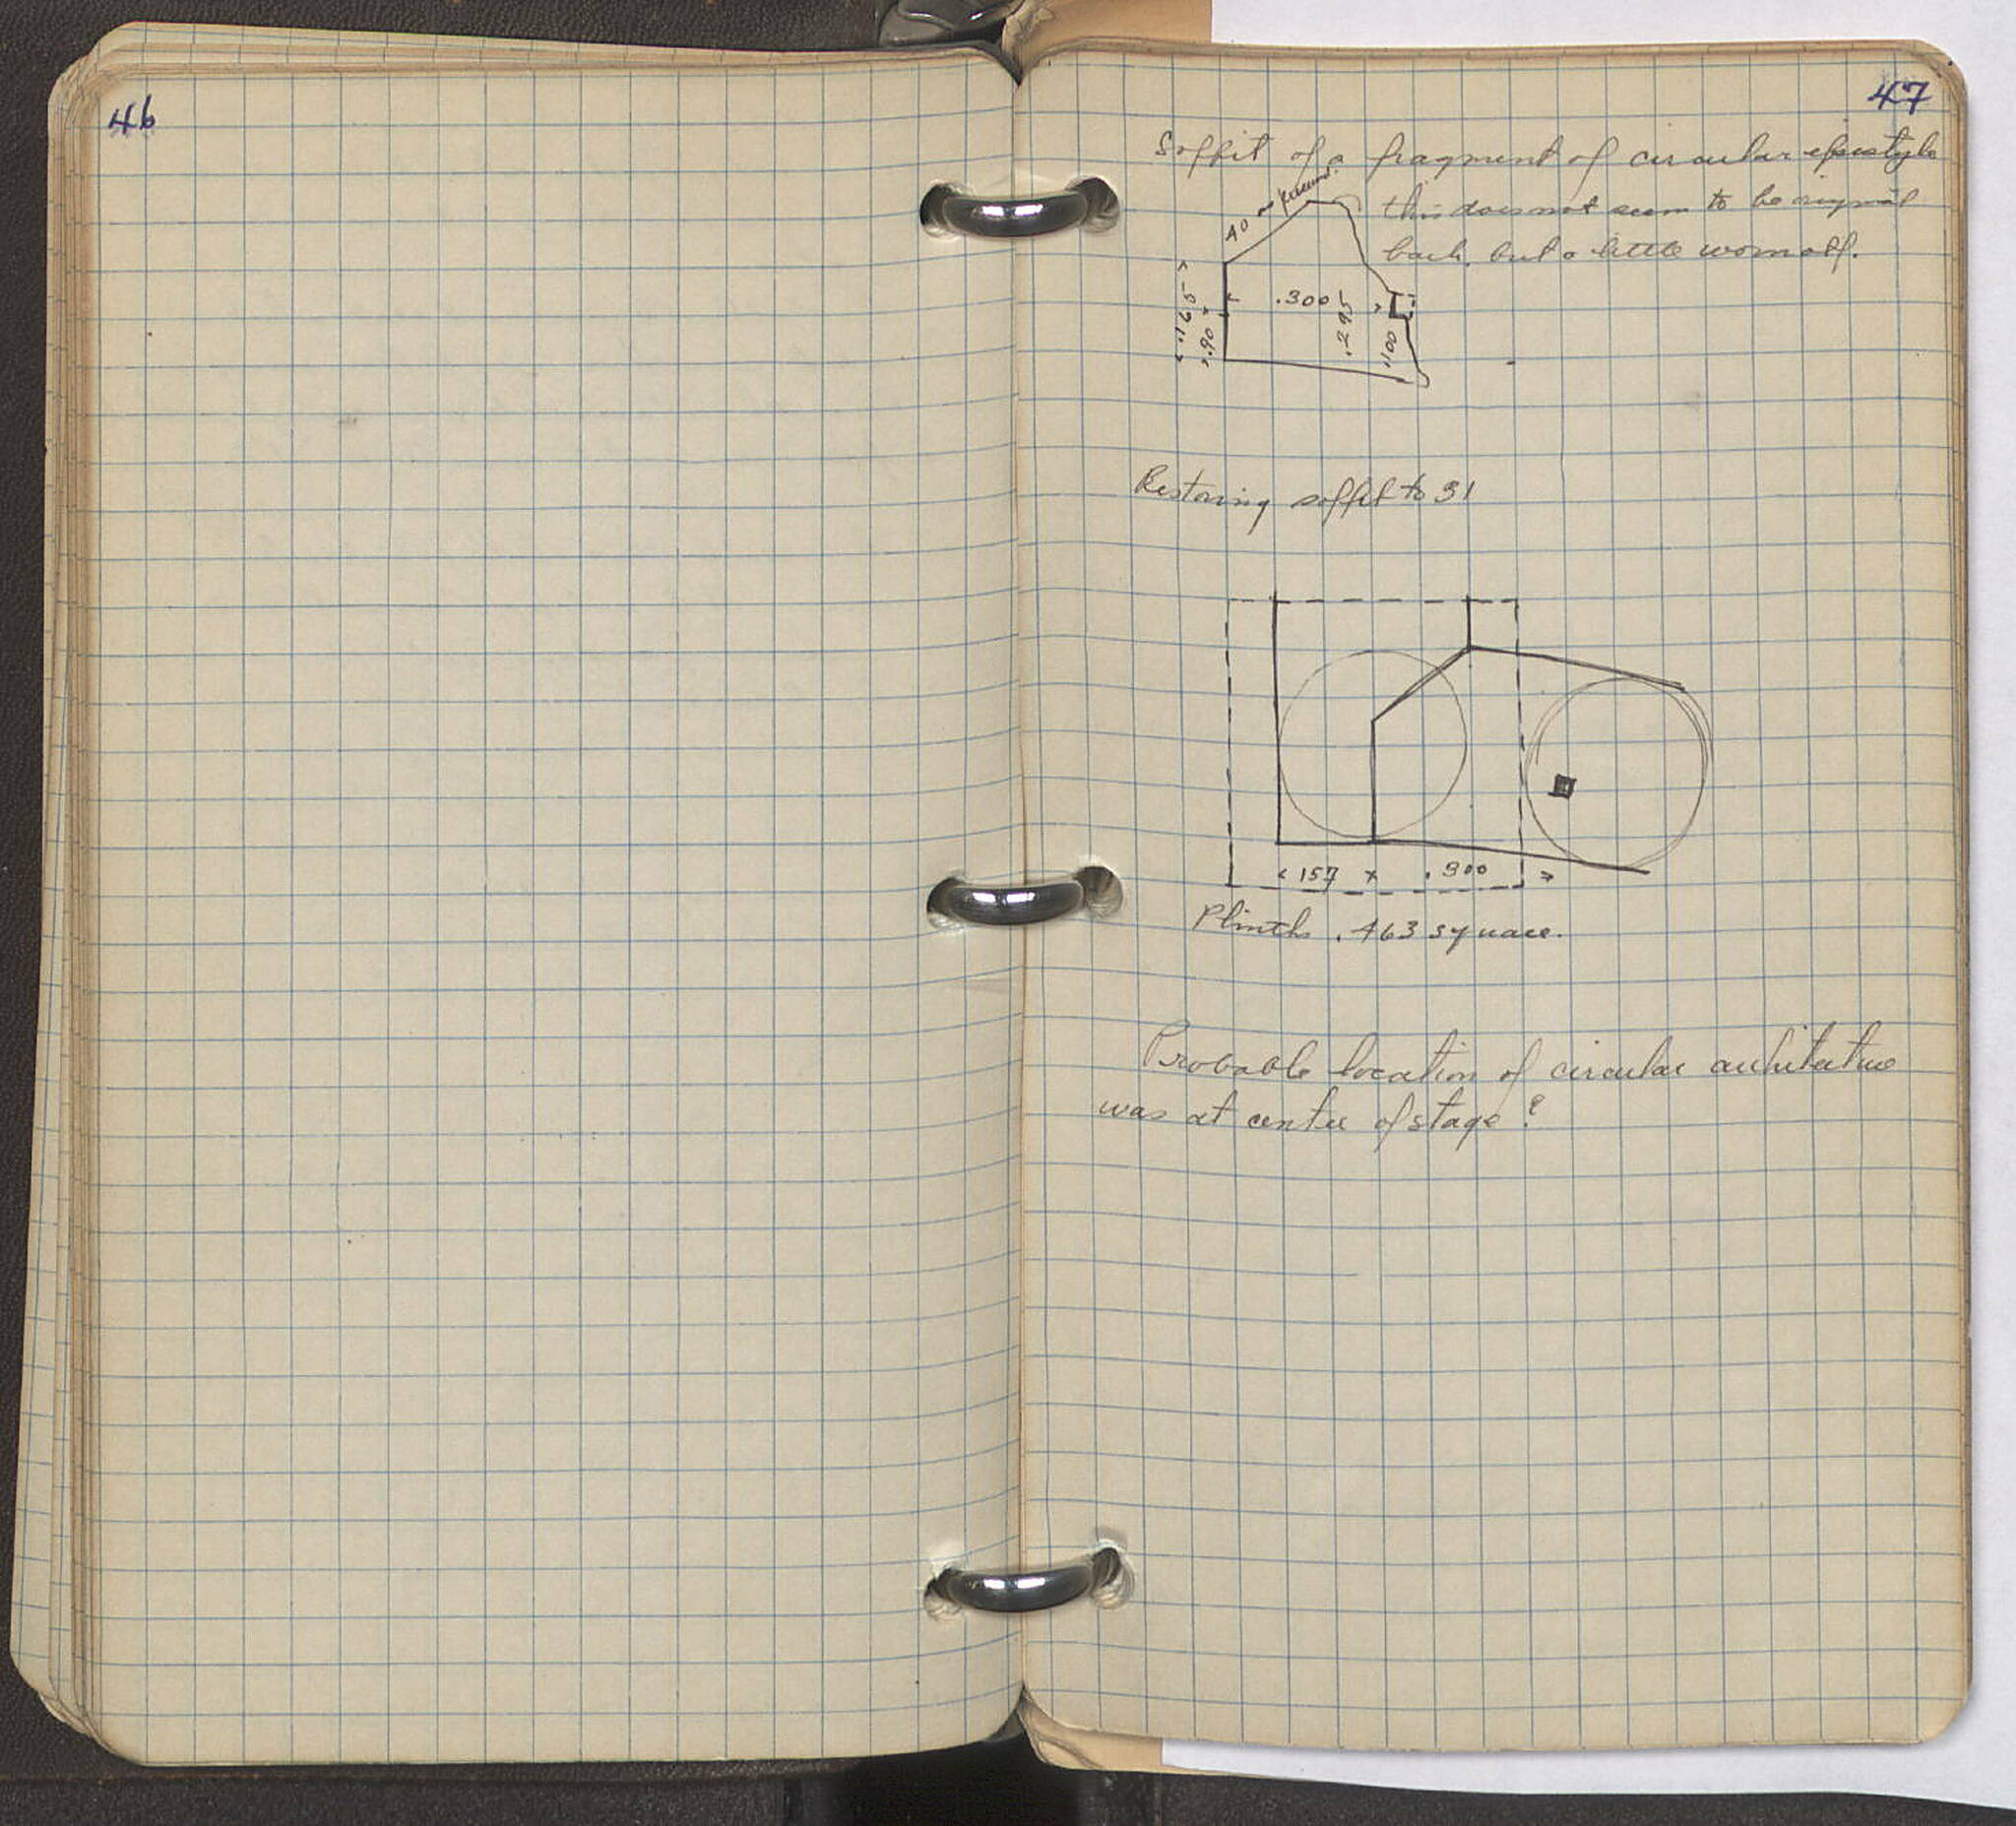 46
47
Soffit of a fragment of circular epistyle
this does not seem to be original
back, but a little worn off.
40
.300
.195
.90
.295
.100
Restoring soffit to 31
157
.300
Plinth .463 square.
Probable location of circular architecture
was at centre of stage?